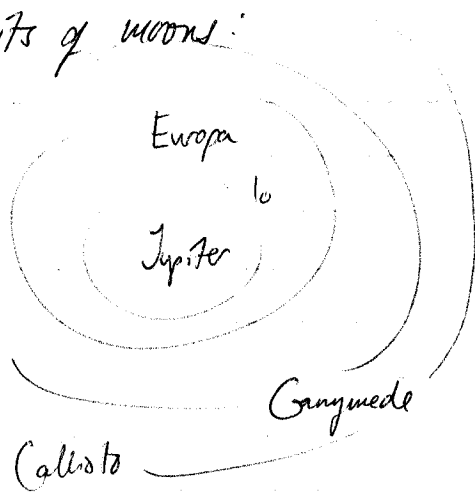 of moons:
Europa
Io
Jupiter
Ganymede
Callisto